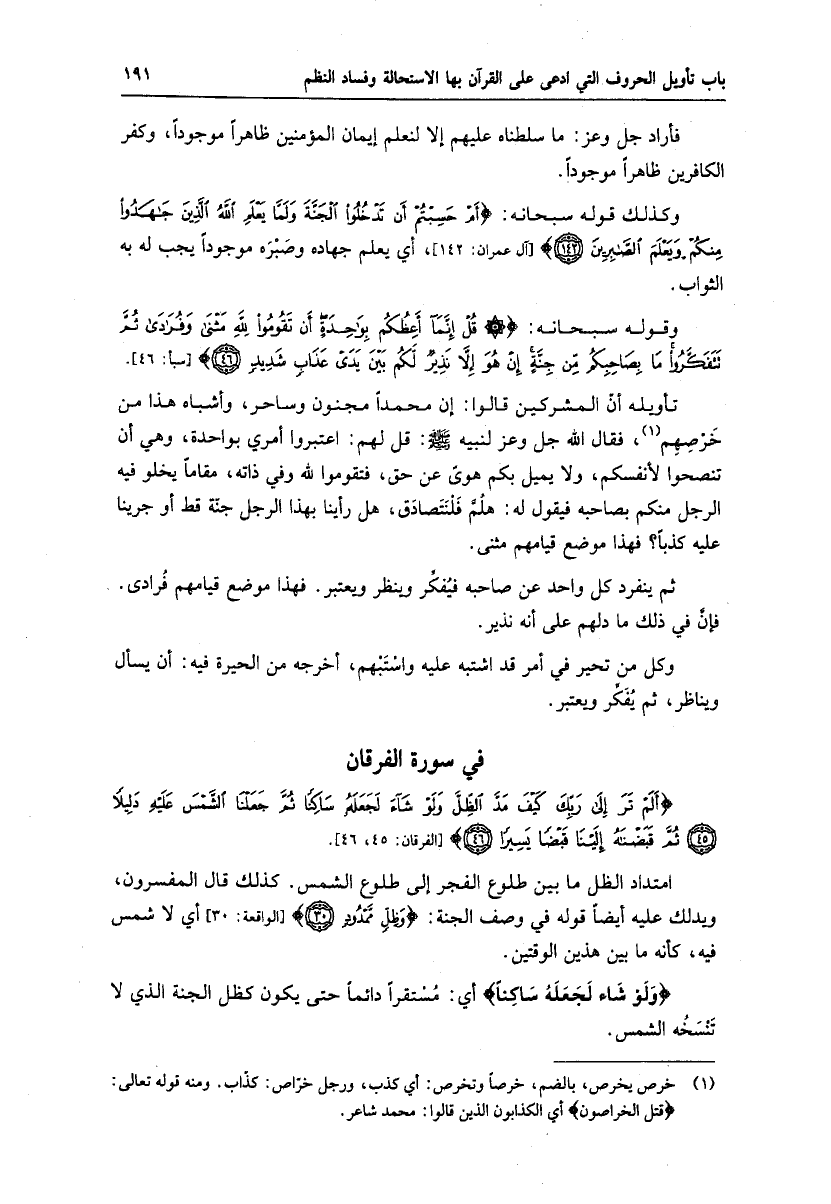 باب تأويل الحروف التي ادعى على القرآن بها الاستحالة وفساد النظم ١٩١
فأراد جل وعز: ما سلطناه عليهم إلا لنعلم إيمان المؤمنين ظاهراً موجوداً، وكفر
الكافرين ظاهراً موجوداً.
وكذلك قوله سبحانه: ﴿أَمْ حَسِبْتُمْ أَن تَدْخُلُوا۟ ٱلْجَنَّةَ وَلَمَّا يَعْلَمِ ٱللَّهُ ٱلَّذِينَ جَٰهَدُوا۟
مِنكُمْ وَيَعْلَمَ ٱلصَّٰبِرِينَ ١٤٢﴾ [آل عمران: ١٤٢]، أي يعلم جهاده وصَبْرَه موجوداً يجب له به
الثواب.
وقوله سبحانه: ﴿۞ قُلْ إِنَّمَآ أَعِظُكُم بِوَٰحِدَةٍ أَن تَقُومُوا۟ لِلَّهِ مَثْنَىٰ وَفُرَٰدَىٰ ثُمَّ
تَتَفَكَّرُوا۟ مَا بِصَاحِبِكُم مِّن جِنَّةٍ إِنْ هُوَ إِلَّا نَذِيرٌ لَّكُم بَيْنَ يَدَىْ عَذَابٍ شَدِيدٍ ٤٦﴾ [سبأ: ٤٦].
تأويله أنّ المشركين قالوا: إن محمداً مجنون وساحر، وأشباه هذا من
خَرْصِهم(١)، فقال الله جل وعز لنبيه ﷺ: قل لهم: اعتبروا أمري بواحدة، وهي أن
تنصحوا لأنفسكم، ولا يميل بكم هوىً عن حق، فتقوموا لله وفي ذاته، مقاماً يخلو فيه
الرجل منكم بصاحبه فيقول له: هلُمَّ فَلْنَتَصادَق، هل رأينا بهذا الرجل جنّة قط أو جرينا
عليه كذباً؟ فهذا موضع قيامهم مثنى.
ثم ينفرد كل واحد عن صاحبه فيُفكِّر وينظر ويعتبر. فهذا موضع قيامهم فُرادى.
فإنَّ في ذلك ما دلهم على أنه نذير.
وكل من تحير في أمر قد اشتبه عليه واسْتَبْهم، أخرجه من الحيرة فيه: أن يسأل
ويناظر، ثم يُفَكِّر ويعتبر.
في سورة الفرقان
﴿أَلَمْ تَرَ إِلَىٰ رَبِّكَ كَيْفَ مَدَّ ٱلظِّلَّ وَلَوْ شَآءَ لَجَعَلَهُۥ سَاكِنًا ثُمَّ جَعَلْنَا ٱلشَّمْسَ عَلَيْهِ دَلِيلًا
٤٥ ثُمَّ قَبَضْنَٰهُ إِلَيْنَا قَبْضًا يَسِيرًا ٤٦﴾ [الفرقان: ٤٥، ٤٦].
امتداد الظل ما بين طلوع الفجر إلى طلوع الشمس. كذلك قال المفسرون،
ويدلك عليه أيضاً قوله في وصف الجنة: ﴿وَظِلٍّ مَّمْدُودٍ ٣٠﴾ [الواقعة: ٣٠] أي لا شمس
فيه، كأنه ما بين هذين الوقتين.
﴿وَلَوْ شَاء لَجَعَلَهُ سَاكِناً﴾ أي: مُسْتقراً دائماً حتى يكون كظل الجنة الذي لا
تَنْسَخُه الشمس.
(١) خرص يخرص، بالضم، خرصاً وتخرص: أي كذب، ورجل خرّاص: كذّاب. ومنه قوله تعالى:
﴿قتل الخراصون﴾ أي الكذابون الذين قالوا: محمد شاعر.